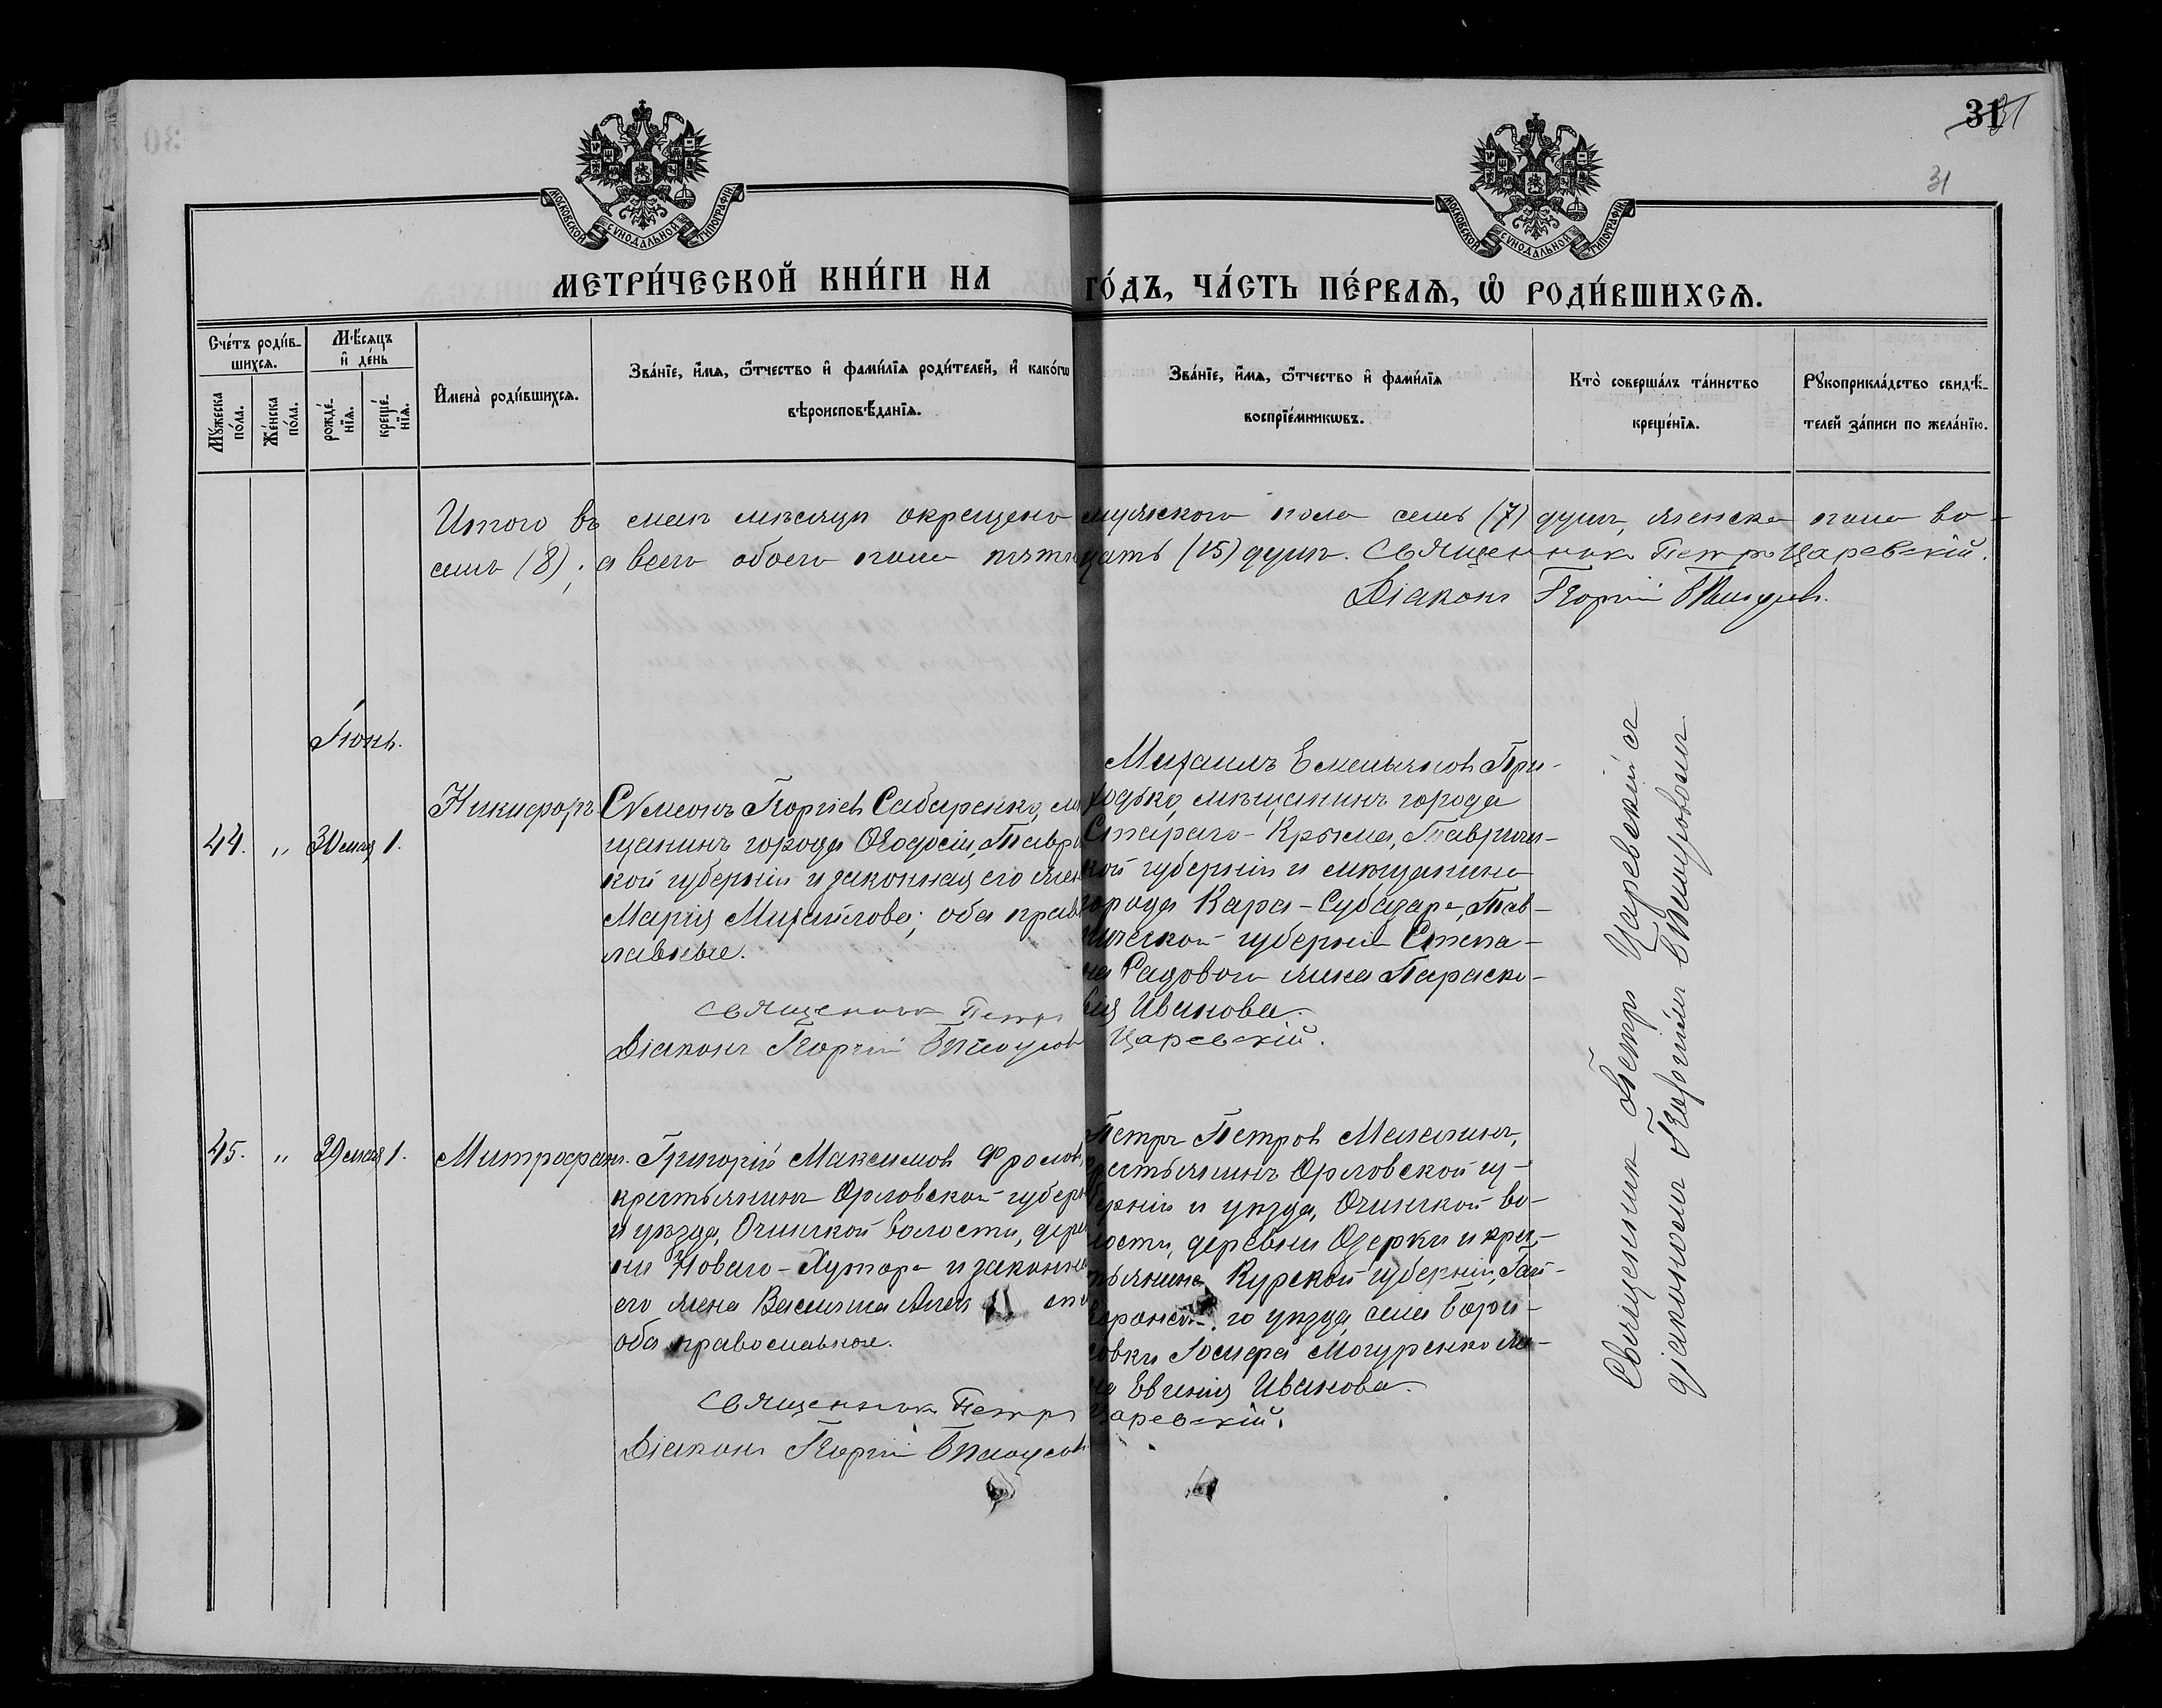 31
31
МОСКОВСКОЙ СУНОДАЛЬНОЙ ТИПОГРАФІИ
МОСКОВСКОЙ СУНОДАЛЬНОЙ ТИПОГРАФІИ
МЕТРИ́ЧЕСКОЙ КНИ́ГИ НА ГО́ДЪ, ЧА́СТЬ ПЕ́РВАѦ, Ѡ҆ РОДИ́ВШИХСѦ.
Сче́тъ роди́в-
шихсѧ.
Мꙋ́жеска
по́ла.
Же́нска
по́ла.
Мѣ́сѧцъ
и҆ де́нь
рожде́-
нїѧ.
креще́-
нїѧ.
И҆мена̀ роди́вшихсѧ.
Зва́нїе, и҆́мѧ, ѻ҆́тчество и҆ фами́лїѧ роди́телей, и҆ како́гѡ
вѣроисповѣ́данїѧ.
Зва́нїе, и҆́мѧ, ѻ҆́тчество и҆ фами́лїѧ
воспрїе́мникѡвъ.
Кто̀ соверша́лъ та́инство
креще́нїѧ.
Рꙋкоприкла́дство свидѣ́-
телей за́писи по жела́нїю.
Итого въ маѣ мѣсяцѣ окрещено мужского пола семь (7) душъ, женска пола во-
семь (8); а всего обоего пола пятнадцать (15) душъ. Священникъ Петръ Царевскій.
Діаконъ Георгій Бѣлоусовъ.
Іюнь.
44. „ 30 мая 1. Никифоръ.
Сѵмеонъ Георгіевъ Сабаренко, мѣ
щанинъ города Ѳеодосіи, Таври
кой губерніи и законная его жен
Марія Михайлова; оба прав
лавные.
Священникъ Петръ Царевскій.
Діаконъ Георгій Бѣлоусовъ
Михаилъ Емельяновъ При-
ходько, мѣщанинъ города
Стараго-Крыма, Тавричи-
кой губерніи и мѣщанина
города Кара-Субазара, Тав-
рической губерніи Степа-
на Радового жена Параске-
вія Иванова.
45. „ 29 мая 1. Митрофанъ.
Григорій Максимовъ Фроловъ,
крестьянинъ Орловской губерн
и уѣзда, Очинской волости, дерев
ни Новаго-Хутора и законная
его жена Василиса
оба православные.
Священникъ Петръ Царевскій.
Діаконъ Георгій Бѣлоусовъ
Петръ Петровъ
крестьянинъ Орловской гу-
берніи и уѣзда, Очинской во-
лости, деревни Озерки и крес-
тьянина Курской губерніи, Гай-
воронска го уѣзда села Бори-
совки Іосифа Могуренко же-
на Евгенія Иванова.
Священникъ Петръ Царевскій съ
діакономъ Георгіемъ Бѣлоусовымъ